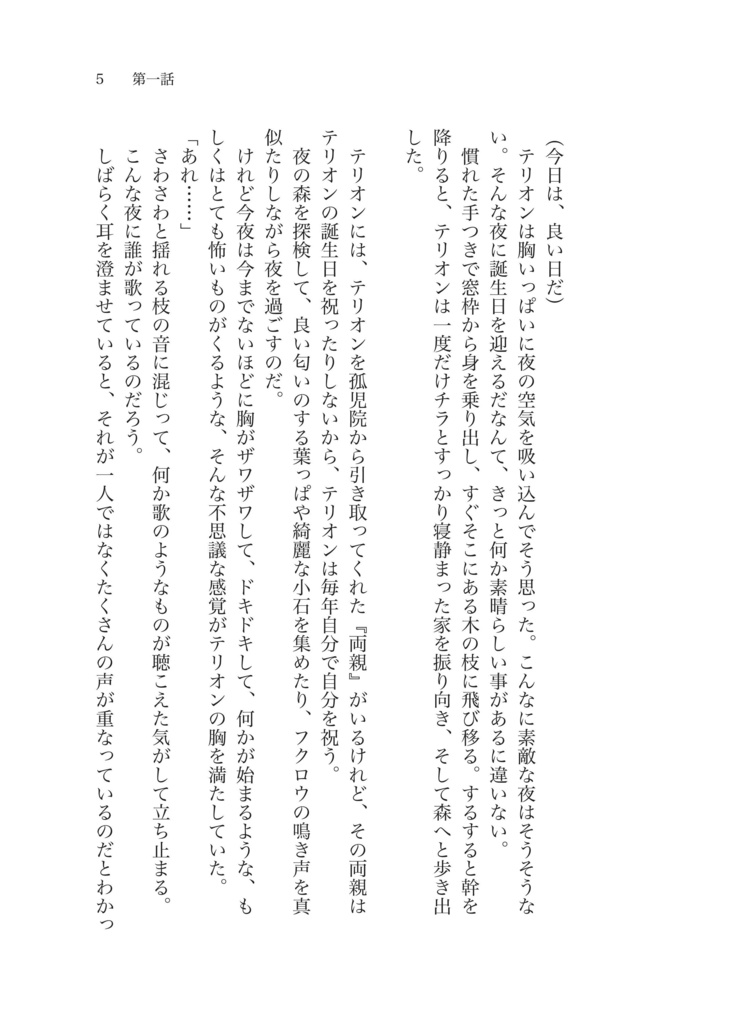 5　第一話
（今日は、良い日だ）
　テリオンは胸いっぱいに夜の空気を吸い込んでそう思った。こんなに素敵な夜はそうそうな
い。そんな夜に誕生日を迎えるだなんて、きっと何か素晴らしい事があるに違いない。
　慣れた手つきで窓枠から身を乗り出し、すぐそこにある木の枝に飛び移る。するすると幹を
降りると、テリオンは一度だけチラとすっかり寝静まった家を振り向き、そして森へと歩き出
した。
　テリオンには、テリオンを孤児院から引き取ってくれた『両親』がいるけれど、その両親は
テリオンの誕生日を祝ったりしないから、テリオンは毎年自分で自分を祝う。
　夜の森を探検して、良い匂いのする葉っぱや綺麗な小石を集めたり、フクロウの鳴き声を真
似たりしながら夜を過ごすのだ。
　けれど今夜は今までないほどに胸がザワザワして、ドキドキして、何かが始まるような、も
しくはとても怖いものがくるような、そんな不思議な感覚がテリオンの胸を満たしていた。
「あれ……」
　さわさわと揺れる枝の音に混じって、何か歌のようなものが聴こえた気がして立ち止まる。
　こんな夜に誰が歌っているのだろう。
　しばらく耳を澄ませていると、それが一人ではなくたくさんの声が重なっているのだとわかっ